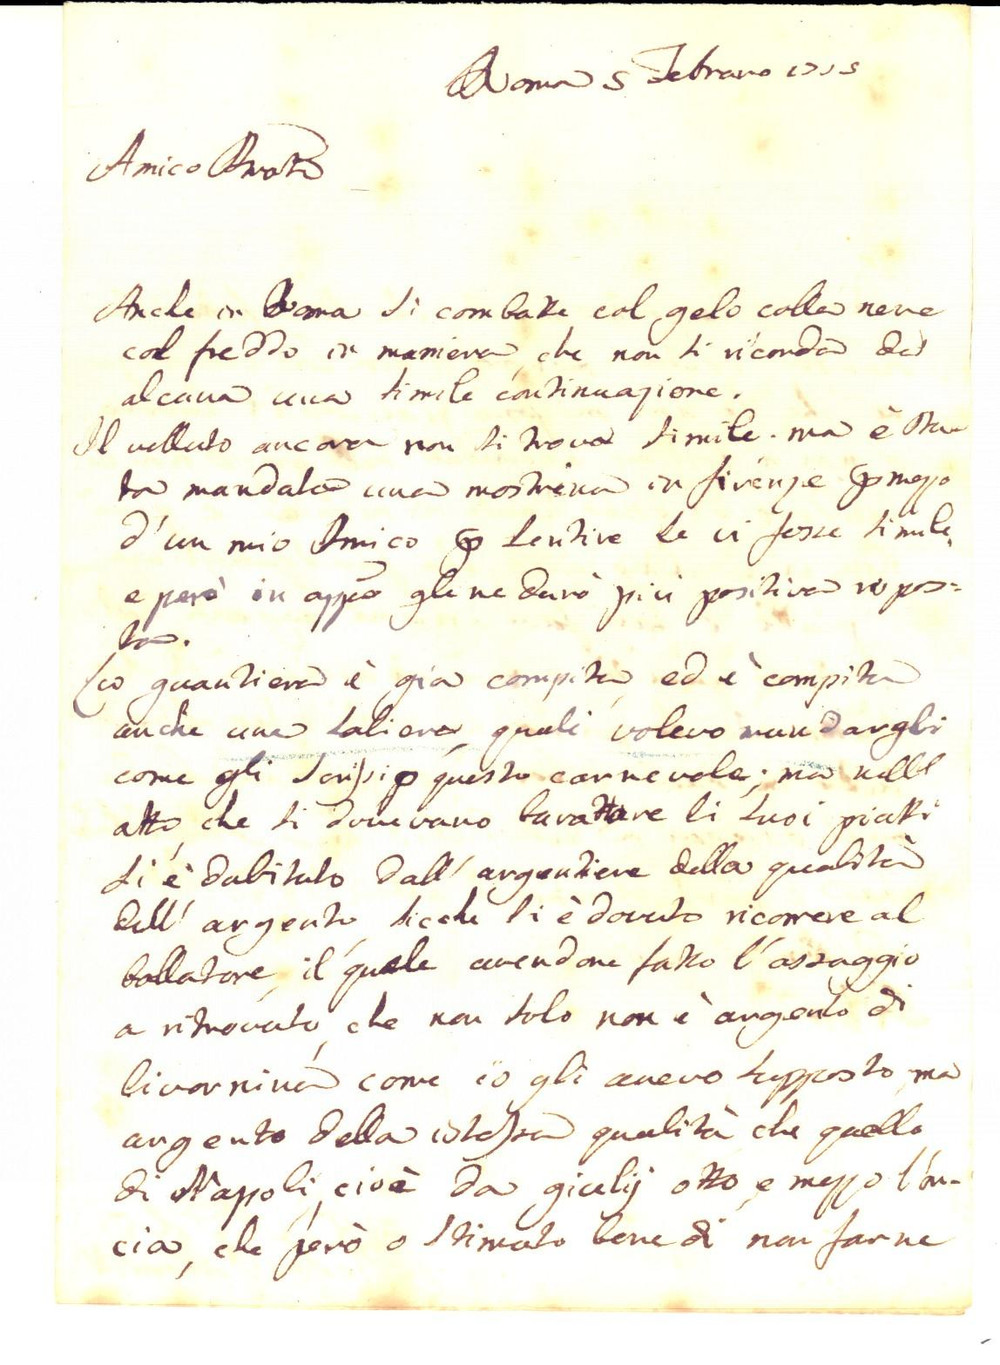 Roma 5 Febraro 1755
Amico Amatmo
Anche in Roma si combatte col gelo colla neve
col freddo in maniera, che non si ricorda da
alcuna una simile continuazione.
Il velluto ancora non si trova simile. ma è sta
ta mandata una mostrina in firenze p mezo
d'un mio Amico p sentire se vi fosse simile,
e però in appo gle ne darò più positiva rispos=
ta.
La guantiera è gia compita, ed è compita
anche una saliera, quali volevo mandargli
come gli scrissi p questo carnevale; ma nell'
atto, che si dovevano barattare li suoi piatti
si è dubitato dall'argentiere della qualità
dell'argento, sicche si è dovuto ricorrere al
bollatore, il quale avendone fatto l'assaggio
a ritrovato, che non solo non è argento di
livornina come io gli avevo supposto, ma
argento della istessa qualità che quello
di Nappoli, cioè da giulij otto e mezzo l'on-
cia, che però o stimato bene di non farne